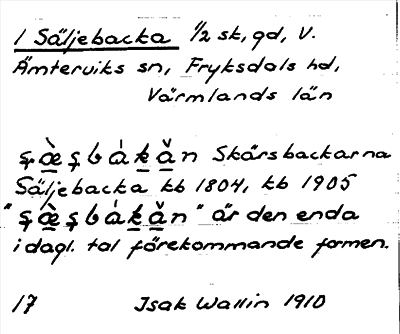 1 Säljebacka 1/2 sk, gd, V.
Ämterviks sn, Fryksdals hd,
Värmlands län
Skärsbackarna
Säljebacka kb 1804, kb 1905
är den enda
i dagl. tal förekommande formen.
17 Isak Wallin 1910